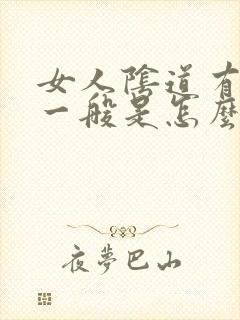 女人陰道有
一般是怎麼
夜夢巴山